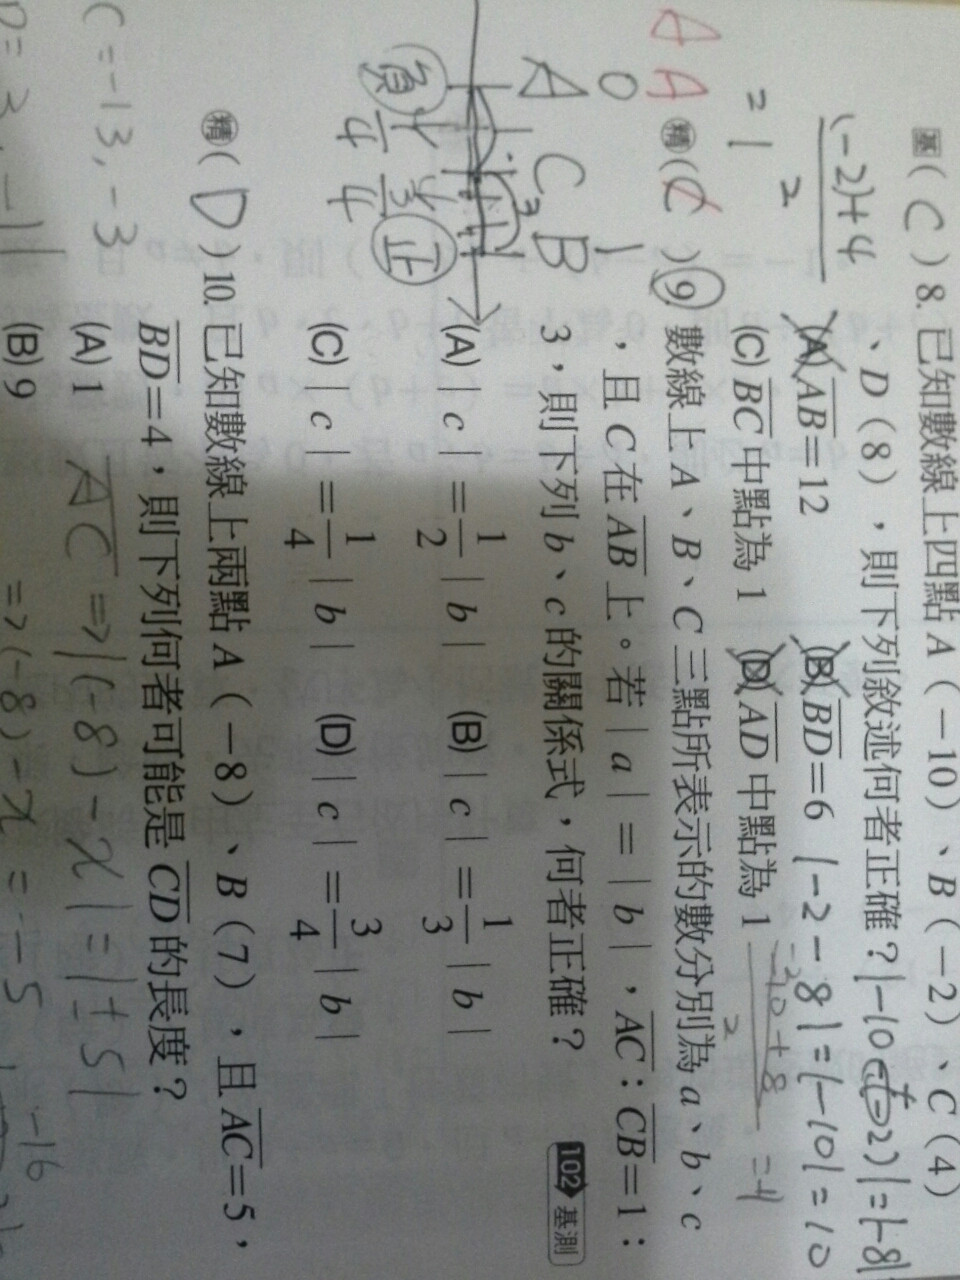 基 ( C ) 8. 已知數線上四點 A(-10)、B(-2)、C(4)
、D(8),則下列敘述何者正確?
(-2)+4
2
= 1
|-10-(-2)|=|-8|
(A) AB=12 (B) BD=6
|-2-8|=|-10|=10
(C) BC 中點為 1 (D) AD 中點為 1
-10+8
2
A A
精 ( C ) 9. 數線上 A、B、C 三點所表示的數分別為 a、b、c
,且 C 在 AB 上。若 |a|=|b|,AC:CB=1:
3,則下列 b、c 的關係式,何者正確? 102 基測
(A) |c|=1/2|b| (B) |c|=1/3|b|
(C) |c|=1/4|b| (D) |c|=3/4|b|
0 1
A C B
負 正
精 ( D ) 10. 已知數線上兩點 A(-8)、B(7),且 AC=5,
BD=4,則下列何者可能是 CD 的長度?
(A) 1
(B) 9
AC => |(-8)-x|=|±5|
=> (-8)-x=-5
C=-13,-3
-16